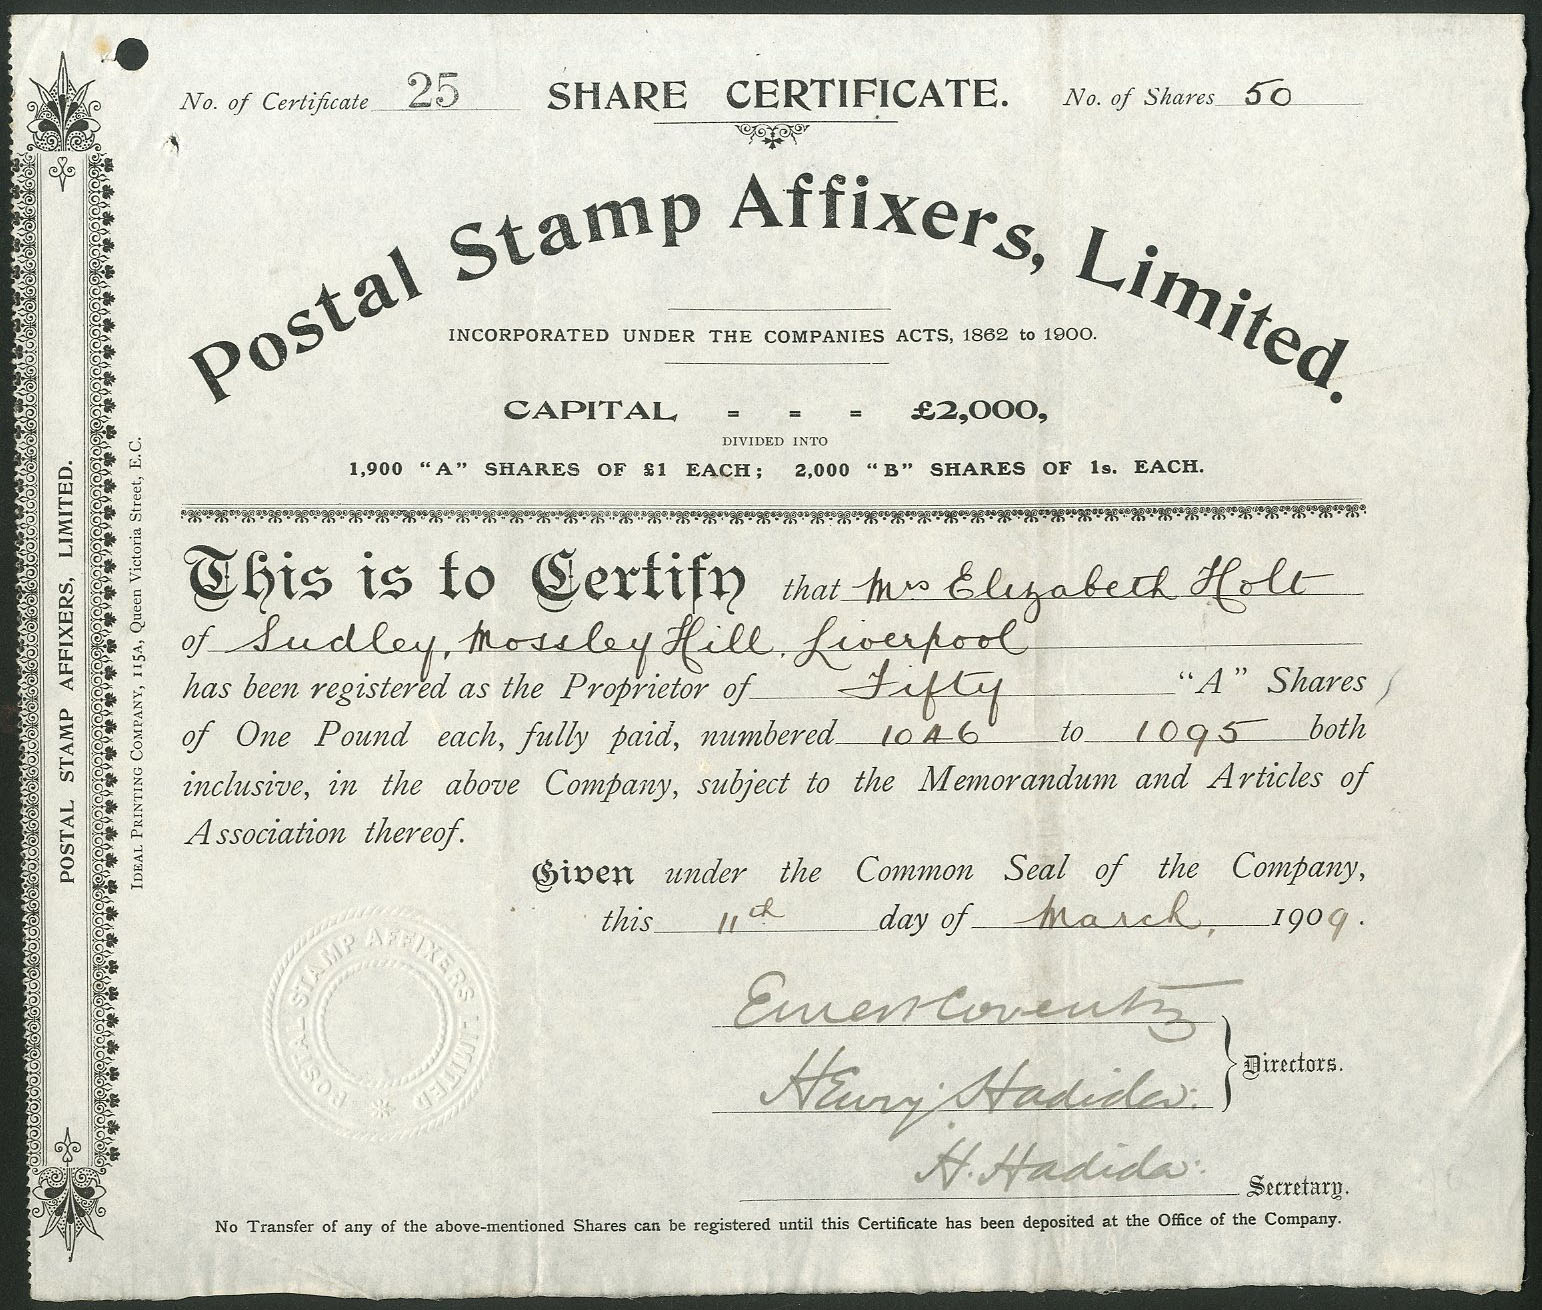 No. of Certificate 25 SHARE CERTIFICATE. No. of Shares 50
Postal Stamp Affixers, Limited.
INCORPORATED UNDER THE COMPANIES ACTS, 1862 to 1900.
CAPITAL = = = £2,000,
DIVIDED INTO
1,900 "A" SHARES OF £1 EACH; 2,000 "B" SHARES OF 1s. EACH.
This is to Certify that Mrs Elizabeth Holt
of Sudley, Mossley Hill, Liverpool
has been registered as the Proprietor of Fifty "A" Shares
of One Pound each, fully paid, numbered 1046 to 1095 both
inclusive, in the above Company, subject to the Memorandum and Articles of
Association thereof.
Given under the Common Seal of the Company,
this 11th day of March, 1909.
Coventry
Henry Hadida
Directors.
H. Hadida
Secretary.
No Transfer of any of the above-mentioned Shares can be registered until this Certificate has been deposited at the Office of the Company.
POSTAL STAMP AFFIXERS, LIMITED.
IDEAL PRINTING COMPANY, 115A, Queen Victoria Street, E.C.
POSTAL STAMP AFFIXERS LIMITED